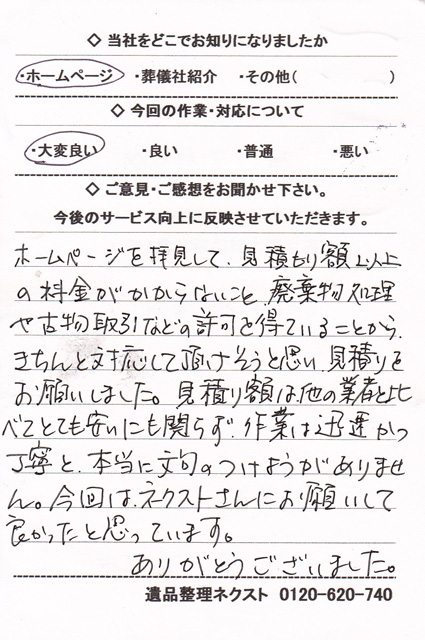 ◇ 当社をどこでお知りになりましたか
・ホームページ ・葬儀社紹介 ・その他( )
◇ 今回の作業・対応について
・大変良い ・良い ・普通 ・悪い
◇ ご意見・ご感想をお聞かせ下さい。
今後のサービス向上に反映させていただきます。
ホームページを拝見して、見積もり額以上
の料金がかからないこと、廃棄物処理
や古物取引などの許可を得ていることから、
きちんと対応して頂けそうと思い、見積りを
お願いしました。見積り額は、他の業者と比
べてとても安いにも関らず、作業は迅速かつ
丁寧と、本当に文句のつけようがありませ
ん。今回は、ネクストさんにお願いして
良かったと思っています。
ありがとうございました。
遺品整理ネクスト 0120-620-740